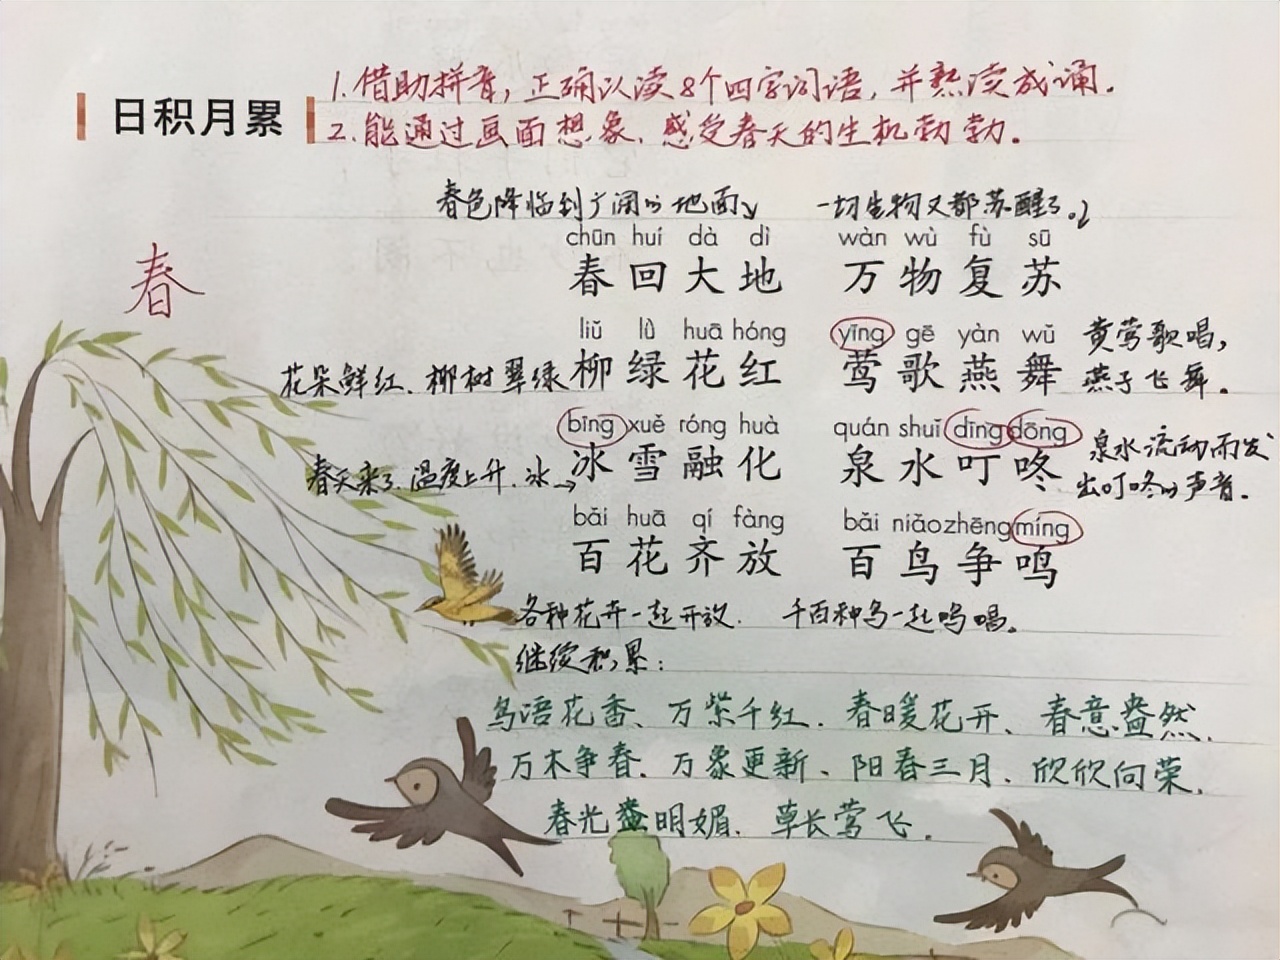 1.借助拼音,正确认读8个四字词语,并熟读成诵。
日积月累
2.能通过画面想象,感受春天的生机勃勃。
春色降临到广阔的地面 一切生物又都苏醒了。
chūn huí dà dì wàn wù fù sū
春回大地 万物复苏
春
liǔ lǜ huā hóng yīng gē yàn wǔ
花朵鲜红、柳树翠绿 柳绿花红 莺歌燕舞 黄莺歌唱,
燕子飞舞。
bīng xuě róng huà quán shuǐ dīng dōng
春天来了.温度上升.冰→ 冰雪融化 泉水叮咚 泉水流动而发
出叮咚的声音.
bǎi huā qí fàng bǎi niǎo zhēng míng
百花齐放 百鸟争鸣
各种花卉一起开放. 千百种鸟一起鸣唱。
继续积累:
鸟语花香、万紫千红.春暖花开、春意盎然.
万木争春.万象更新、阳春三月.欣欣向荣.
春光明媚.草长莺飞.